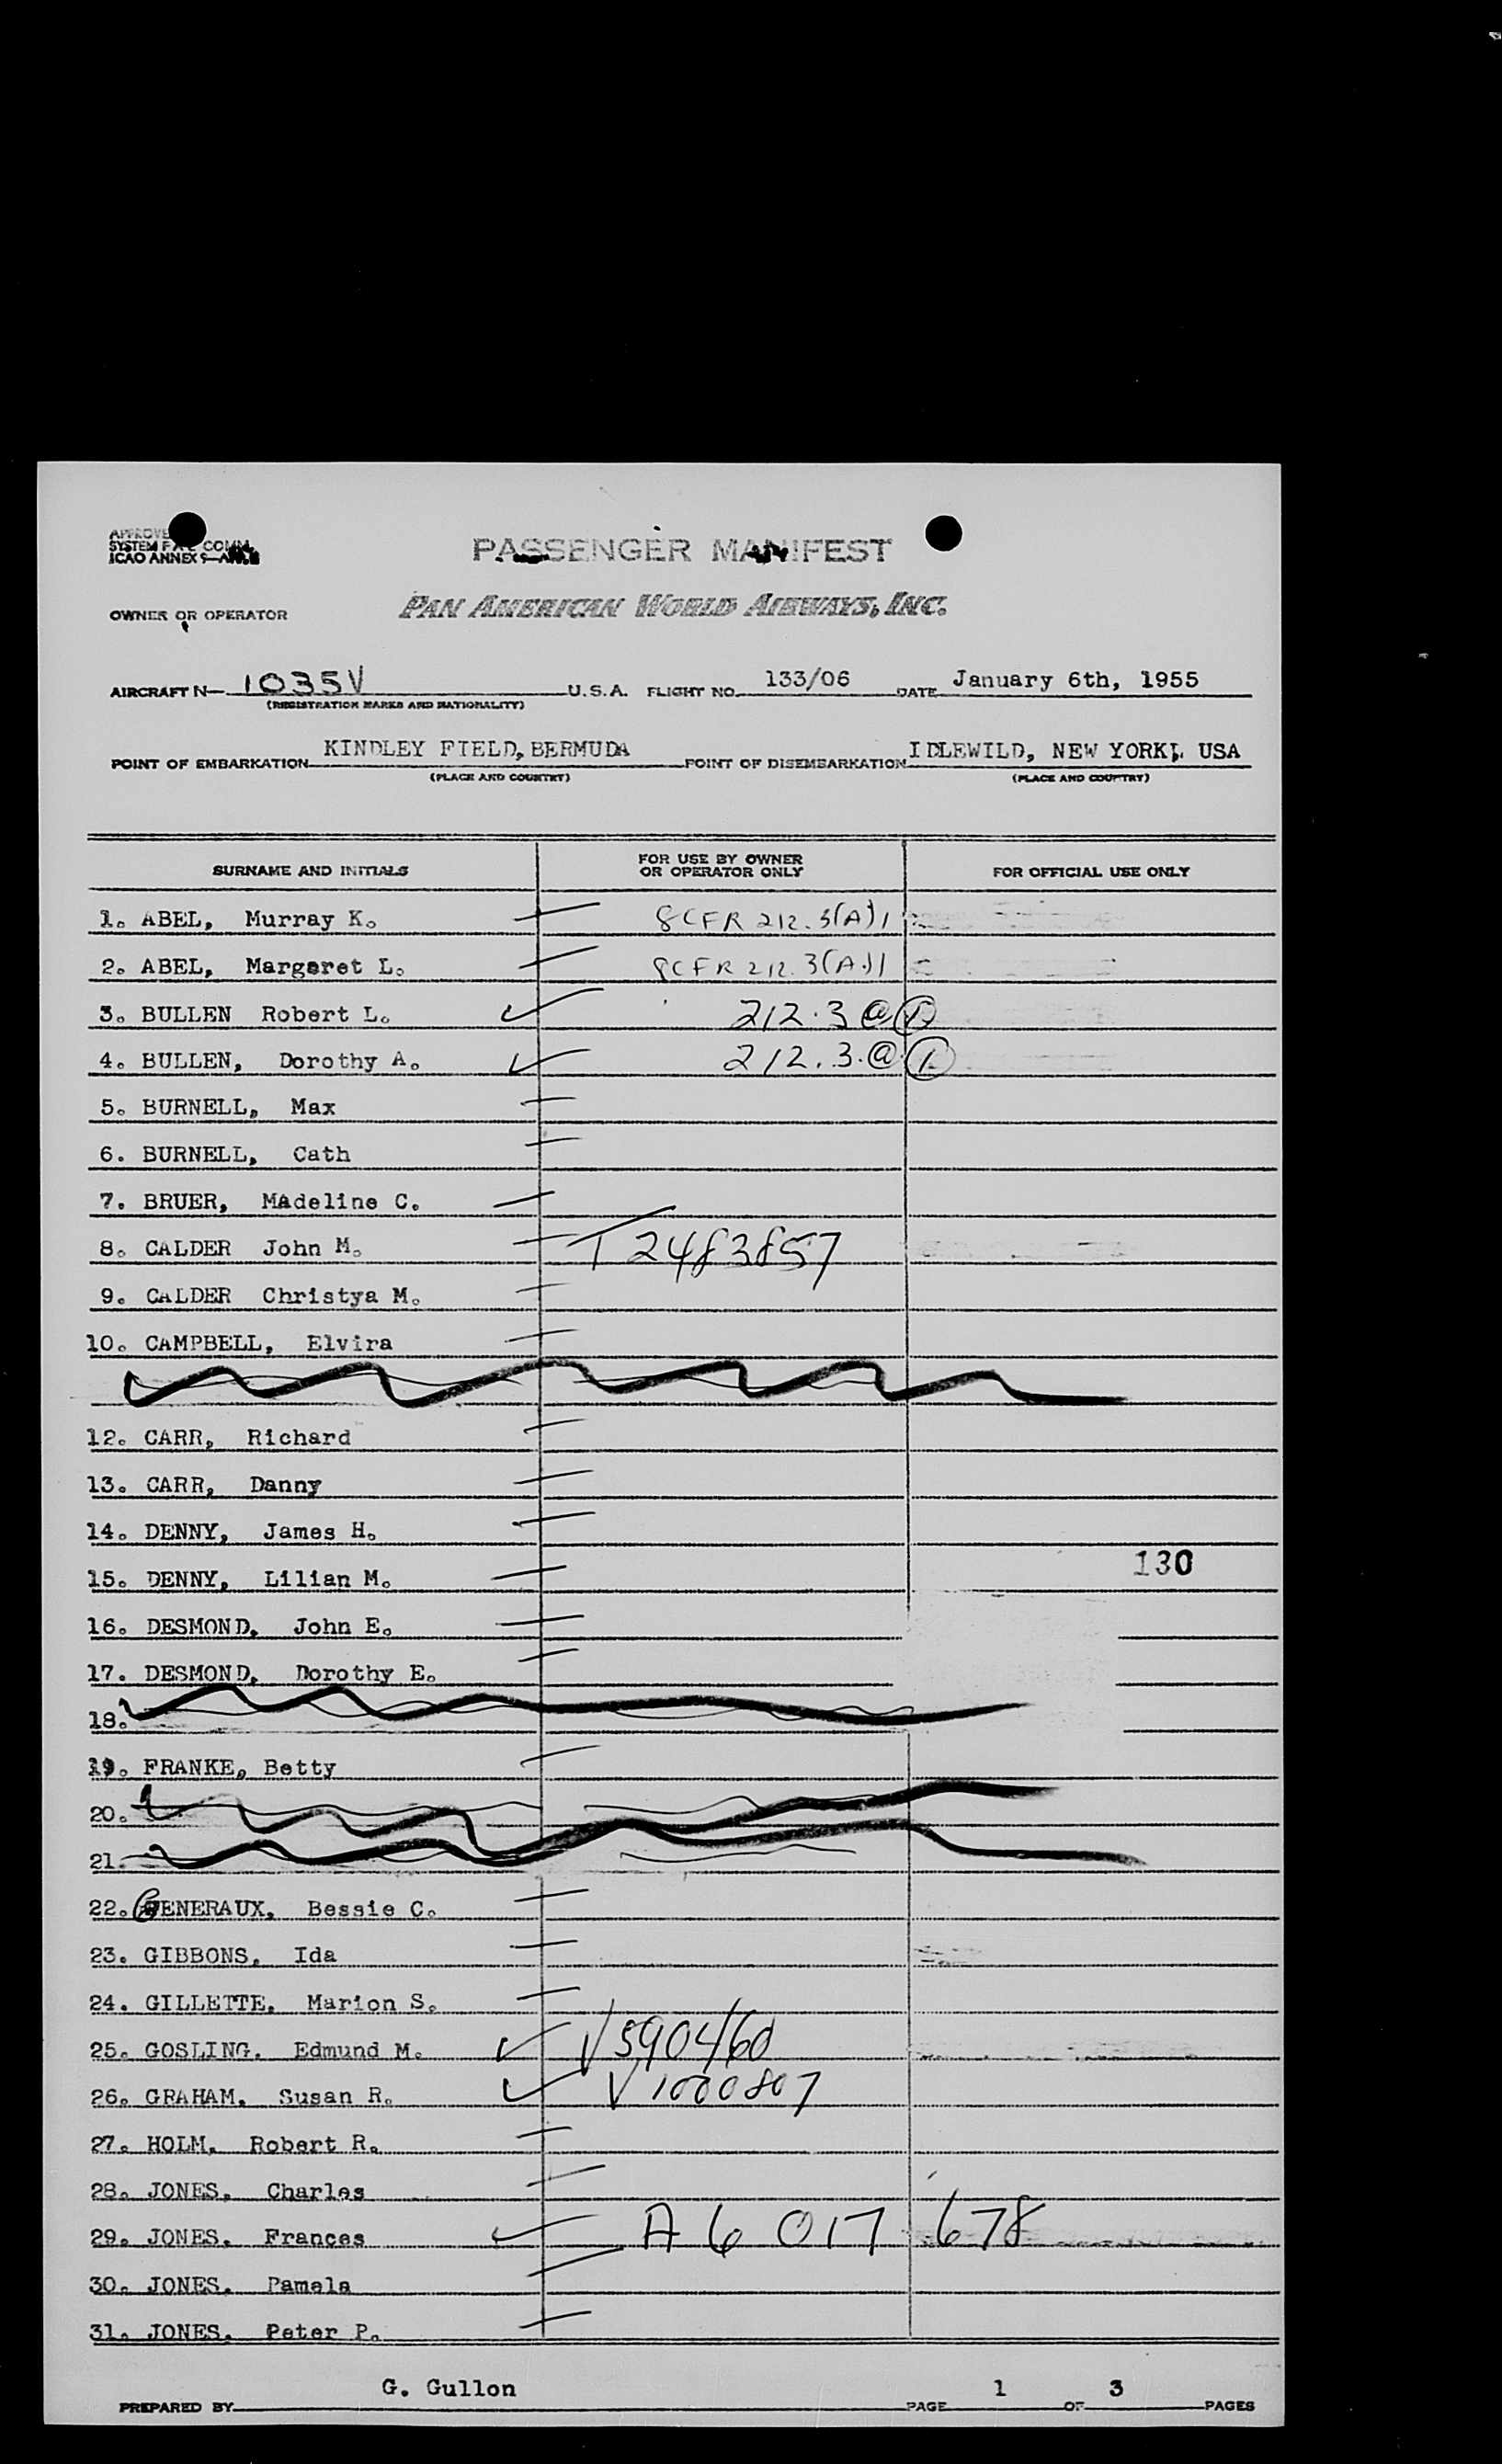 APPROVE
SYSTEM F A L COMM.
ICAO ANNEX 9—
PASSENGER MANIFEST
OWNER OR OPERATOR PAN AMERICAN WORLD AIRWAYS, INC.
AIRCRAFT N— 1035V U.S.A. FLIGHT NO. 133/06 DATE January 6th, 1955
(REGISTRATION MARKS AND NATIONALITY)
POINT OF EMBARKATION KINDLEY FIELD, BERMUDA POINT OF DISEMBARKATION IDLEWILD, NEW YORK, USA
(PLACE AND COUNTRY) (PLACE AND COUNTRY)
SURNAME AND INITIALS FOR USE BY OWNER OR OPERATOR ONLY FOR OFFICIAL USE ONLY
1. ABEL, Murray K. 8CFR 212.3(A)1
2. ABEL, Margaret L. 8CFR 212.3(A)1
3. BULLEN Robert L. 212.3 @ 1
4. BULLEN, Dorothy A. 212.3.@ 1
5. BURNELL, Max
6. BURNELL, Cath
7. BRUER, MAdeline C.
8. CALDER John M. T2483857
9. CALDER Christya M.
10. CAMPBELL, Elvira
12. CARR, Richard
13. CARR, Danny
14. DENNY, James H.
15. DENNY, Lilian M. 130
16. DESMOND, John E.
17. DESMOND, Dorothy E.
18.
19. FRANKE, Betty
20.
21.
22. GENERAUX, Bessie C.
23. GIBBONS, Ida
24. GILLETTE, Marion S.
25. GOSLING, Edmund M. V590460
26. GRAHAM, Susan R. V1000807
27. HOLM, Robert R.
28. JONES, Charles
29. JONES, Frances A6 017 678
30. JONES, Pamela
31. JONES, Peter P.
PREPARED BY G. Gullon PAGE 1 OF 3 PAGES